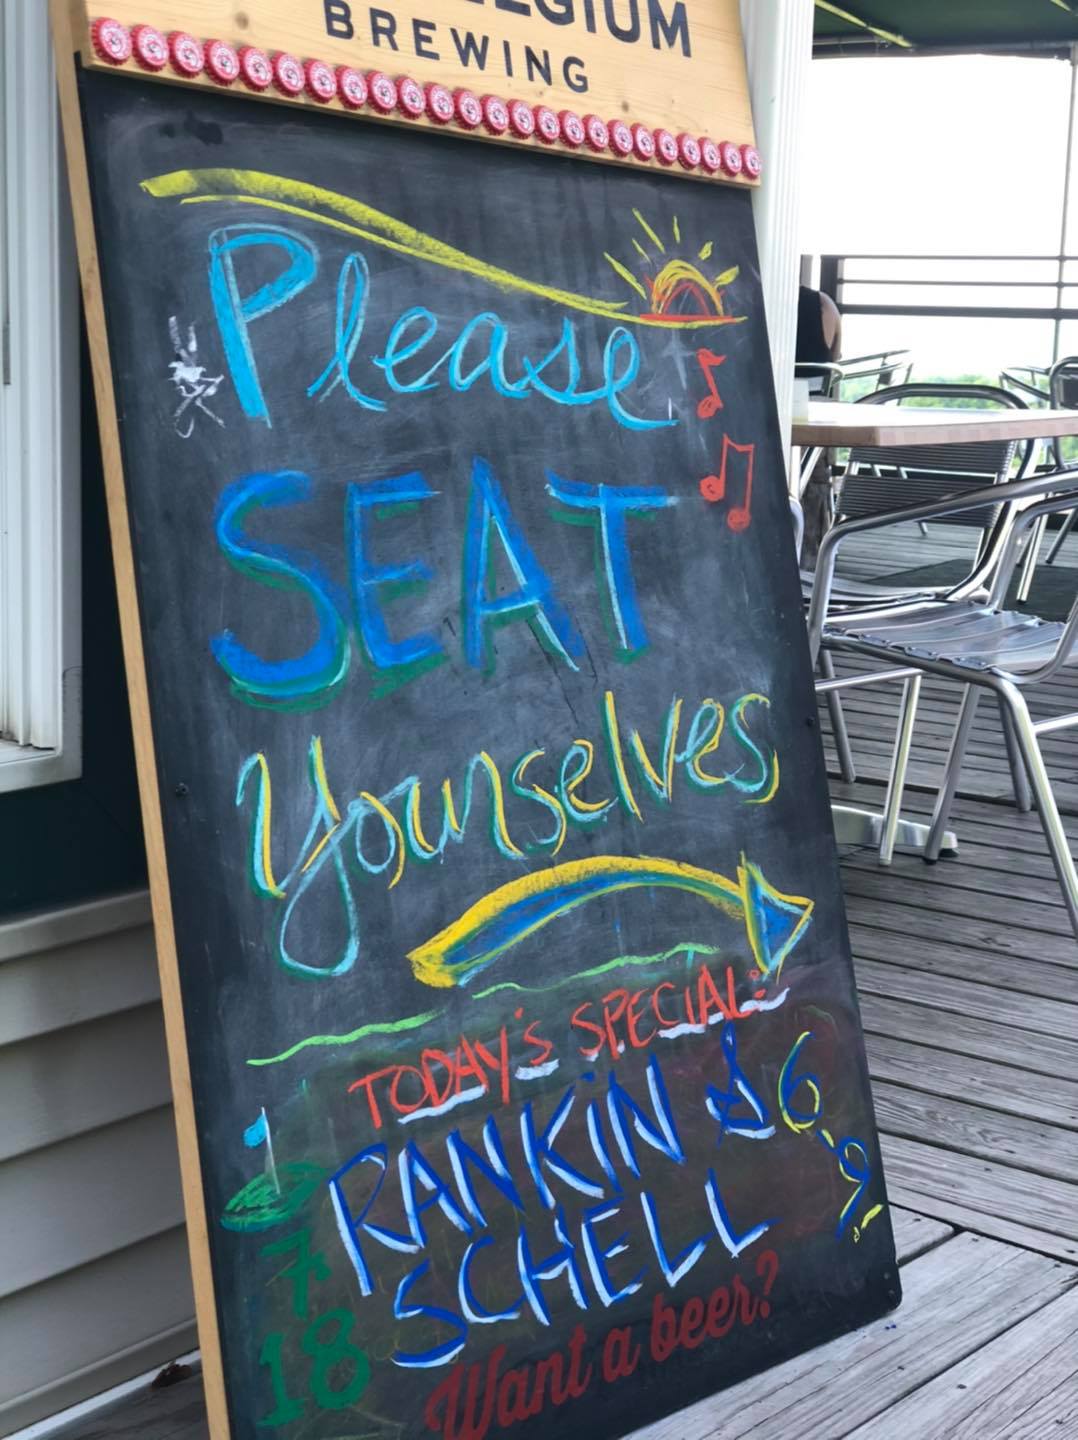 BREWING
Please
SEAT
Yourselves
TODAY'S SPECIAL:
RANKiN & 6
SCHELL 9
7
18
Want a beer?